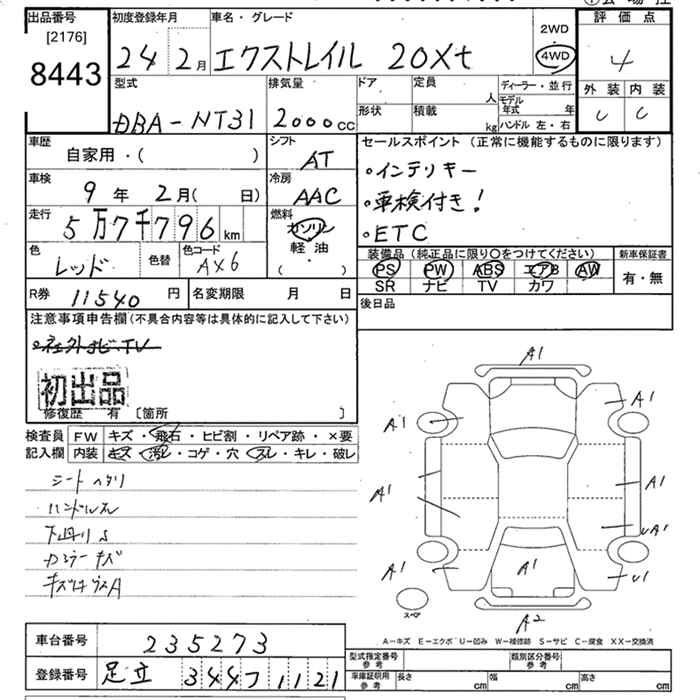 出品番号
[2176]
8443
初度登録年月
24 2月
車名・グレード
エクストレイル 20Xt
2WD
4WD
評価点
4
外装 内装
C C
型式
DBA-NT31
排気量
2000cc
ドア
形状
定員
人
積載
kg
ディーラー・並行
モデル年式 年
ハンドル 左・右
車歴
自家用・( )
シフト
AT
セールスポイント(正常に機能するものに限ります)
・インテリキー
・車検付き!
・ETC
車検
9年 2月( 日)
冷房
AAC
走行
5万7千796km
燃料
ガソリン
軽油
( ・ )
色
レッド
色替
色コード
AX6
装備品(純正品に限り○をつけてください)
PS PW ABS エアB AW
SR ナビ TV カワ
新車保証書
有・無
R券 11540円
名変期限 月 日
後日品
注意事項申告欄(不具合内容等は具体的に記入して下さい)
・社外ナビ・TV
初出品
修復歴 有 [箇所 ]
検査員記入欄
FW キズ・飛石・ヒビ割・リペア跡・×要
内装 キズ・汚レ・コゲ・穴・スレ・キレ・破レ
シートヘタリ
ハンドルスレ
下廻りS
カラーキズ
A1
A1
A1
A1
A1
UA1
A1
A1
U1
A2
スペア
A-キズ E-エクボ U-凹み W-補修跡 S-サビ C-腐食 XX-交換済
車台番号 235273
登録番号 足立 344フ1121
型式指定番号 参考
類別区分番号 参考
車庫証明用 参考
長さ cm 幅 cm 高さ cm